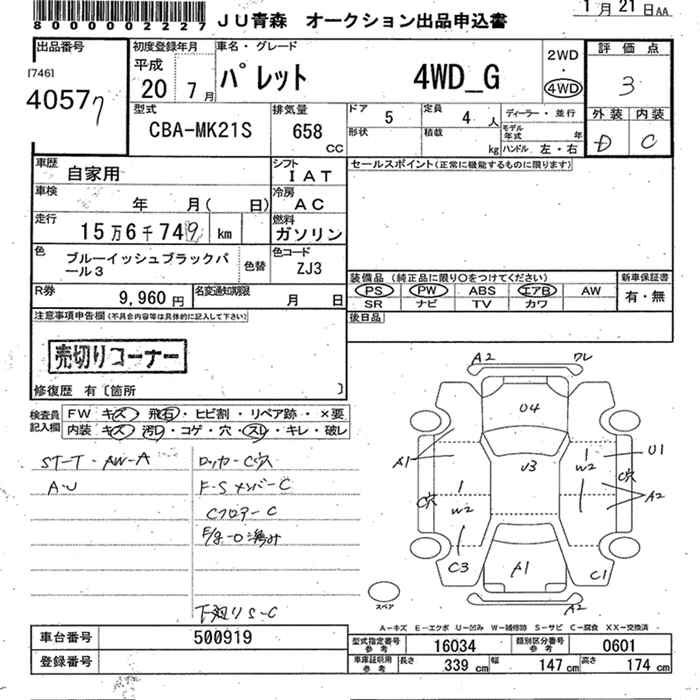 80000002227
JU青森 オークション出品申込書
1月21日AA
出品番号
[746]
4057
初度登録年月
平成
20 7月
車名・グレード
パレット 4WD_G
2WD
・
4WD
評価点
3
型式
CBA-MK21S
排気量
658
CC
ドア
5
定員
4人
形状
積載
kg
ディーラー・並行
モデル年式 年
ハンドル 左・右
外装 内装
D C
車歴
自家用
シフト
IAT
セールスポイント(正常に機能するものに限ります)
車検
年 月( 日)
冷房
AC
走行
15万6千749 km
燃料
ガソリン
色
ブルーイッシュブラックパール3
色替
色コード
ZJ3
装備品 (純正品に限り○をつけてください)
PS PW ABS エアB AW
SR ナビ TV カワ
新車保証書
有・無
R券
9,960円
名変通知期限
月 日
後日品
注意事項申告欄(不具合内容等は具体的に記入して下さい)
売切りコーナー
修復歴 有〔箇所 〕
検査員記入欄
FW キズ・飛石・ヒビ割・リペア跡・×要
内装 キズ・汚れ・コゲ・穴・スレ・キレ・破レ
ST-T・AW-A
A・U
ロッカーC穴
F・SメンバーC
CフロアーC
下廻りS-C
A2 ワレ
U4
A1
U3
1 W2
U1
C穴
A2
C穴
1 W2
C3
A1
C1
スペア
A2
A-キズ E-エクボ U-凹み W-補修跡 S-サビ C-腐食 XX-交換済
車台番号 500919
登録番号
型式指定番号参考 16034
類別区分番号参考 0601
車庫証明用参考 長さ 339cm 幅 147cm 高さ 174cm